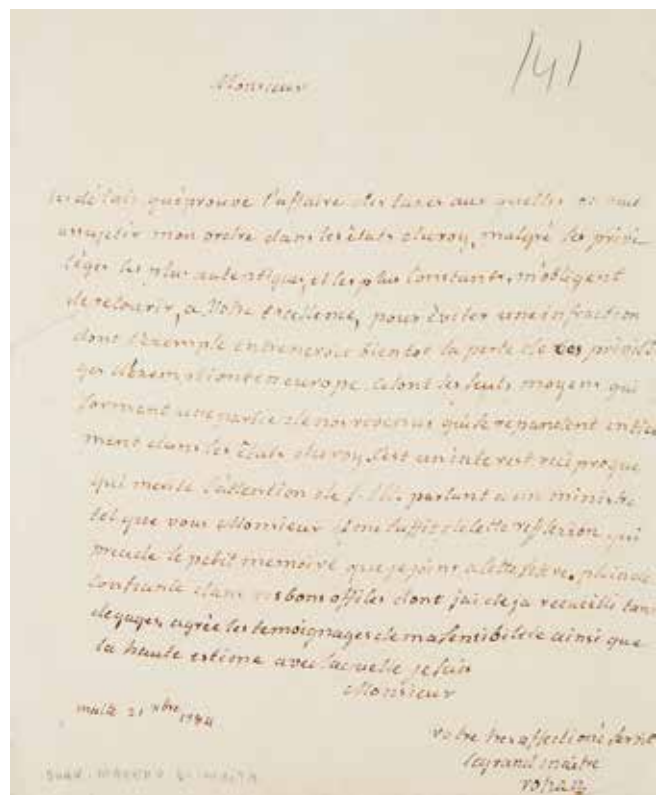 141
Monsieur
les délais qu'éprouve l'affaire des taxes aux quelles on veut
assujetir mon ordre dans les états du roy, malgré les privi
lèges les plus autentiques, et les plus constants, m'obligent
de recourir, a Votre Excellence, pour éviter une infraction
dont l'exemple entreneroit bientot la perte de ces privilè
ges d'exemptions en europe. ce sont les seuls moyens qui
forment une partie de nos revenus qui se repandent entiere
ment dans les États du roy, c'est un interest reciproque
qui merite l'attention de parlant a un ministre
tel que vous Monsieur il me suffit de cette reflexion qui
precede le petit memoire que je joins a cette lettre. plein de
confiance dans vos bons offices dont j'ai deja recueilli tant
de gages, agrée les temoignages de ma sensibilité ainsi que
la haute estime avec laquelle je suis
Monsieur
malte 21 xbre 1784
votre tres affectioné
le grand maitre
rohan